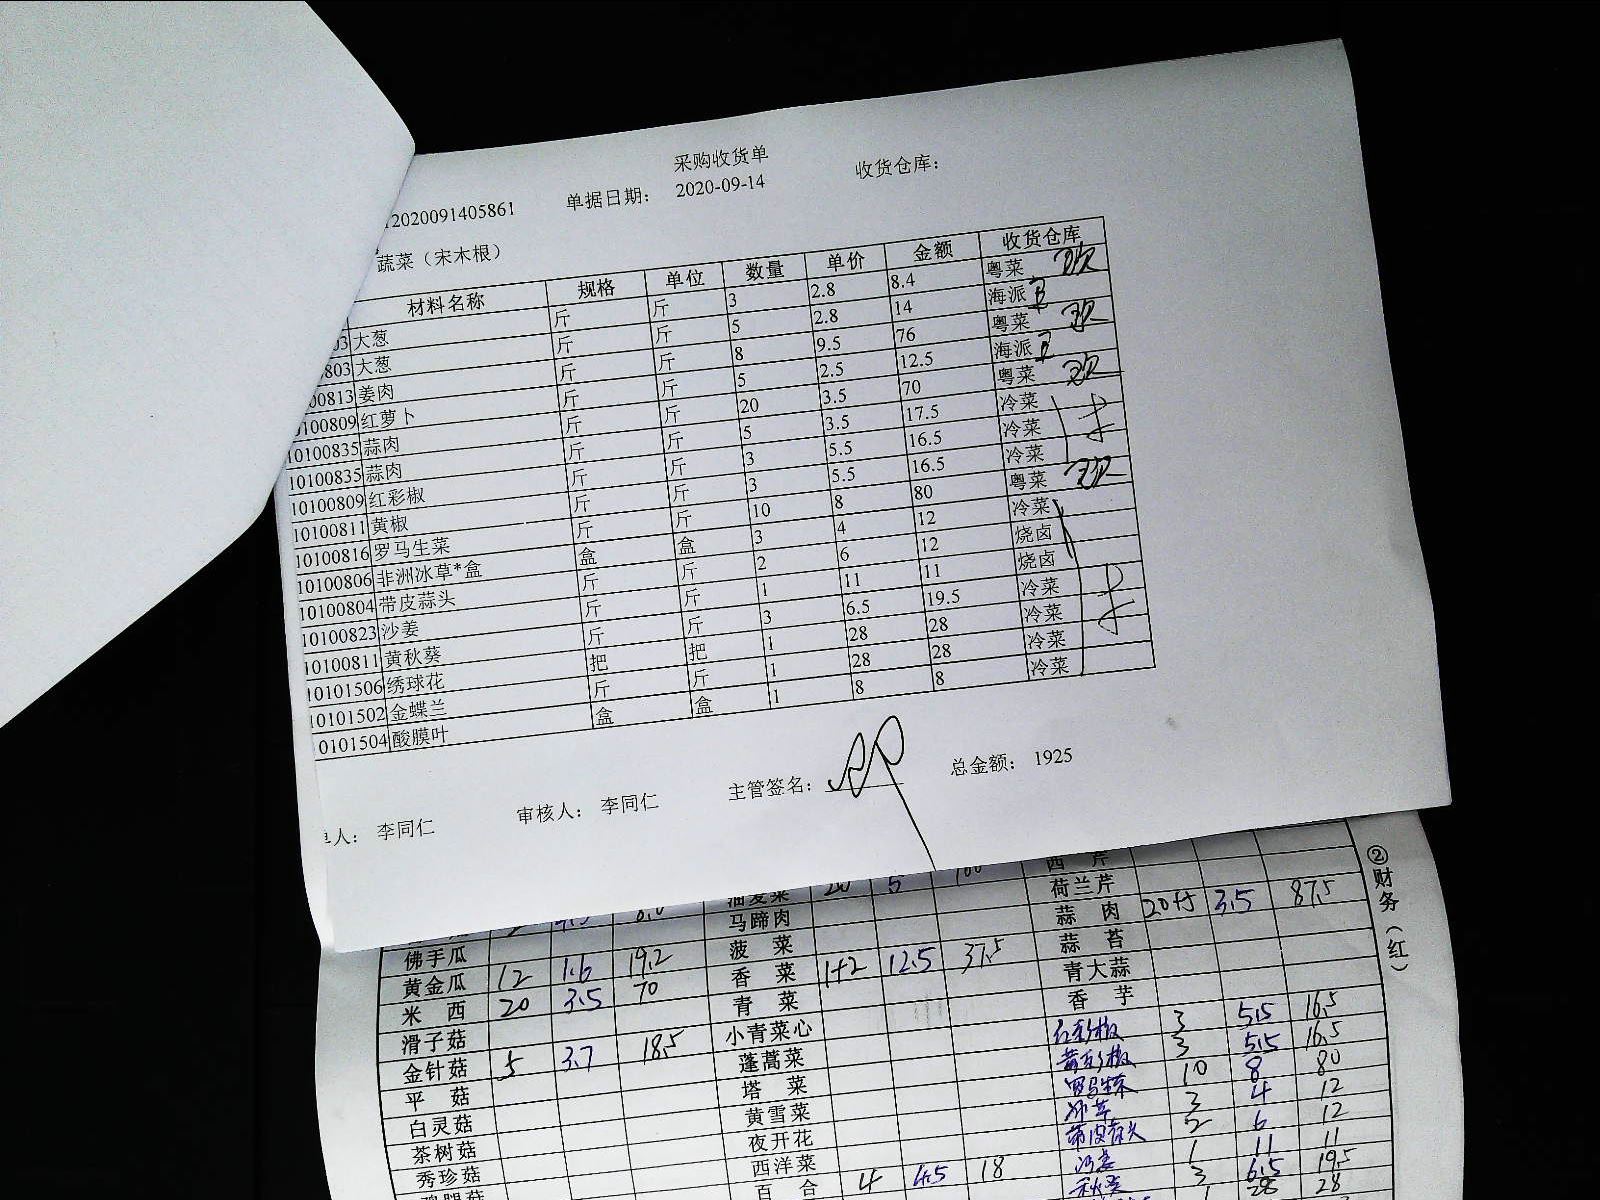 采购收货单
12020091405861 单据日期: 2020-09-14 收货仓库:
蔬菜（宋木根）
材料名称 规格 单位 数量 单价 金额 收货仓库
03 大葱 斤 斤 3 2.8 8.4 粤菜
803 大葱 斤 斤 5 2.8 14 海派
00813 姜肉 斤 斤 8 9.5 76 粤菜
100809 红萝卜 斤 斤 5 2.5 12.5 海派
10100835 蒜肉 斤 斤 20 3.5 70 粤菜
10100835 蒜肉 斤 斤 5 3.5 17.5 冷菜
10100809 红彩椒 斤 斤 3 5.5 16.5 冷菜
10100811 黄椒 斤 斤 3 5.5 16.5 冷菜
10100816 罗马生菜 斤 斤 10 8 80 粤菜
10100806 非洲冰草*盒 盒 盒 3 4 12 冷菜
10100804 带皮蒜头 斤 斤 2 6 12 烧卤
10100823 沙姜 斤 斤 1 11 11 烧卤
10100811 黄秋葵 斤 斤 3 6.5 19.5 冷菜
10101506 绣球花 把 把 1 28 28 冷菜
10101502 金蝶兰 斤 斤 1 28 28 冷菜
10101504 酸膜叶 盒 盒 1 8 8 冷菜
单人: 李同仁 审核人: 李同仁 主管签名: 总金额: 1925
②财务（红）
油麦菜 20 5 100 西芹
马蹄肉 荷兰芹
佛手瓜 菠菜 蒜肉 20+5 3.5 87.5
黄金瓜 12 1.6 19.2 香菜 1+2 12.5 37.5 蒜苔
米西 20 3.5 70 青菜 青大蒜
滑子菇 小青菜心 香芋
金针菇 5 3.7 18.5 蓬蒿菜 红彩椒 3 5.5 16.5
平菇 塔菜 黄彩椒 3 5.5 16.5
白灵菇 黄雪菜 罗马生菜 10 8 80
茶树菇 夜开花 冰草 3 4 12
秀珍菇 西洋菜 带皮蒜头 2 6 12
百合 4 4.5 18 沙姜 1 11 11
秋葵 3 6.5 19.5
1 28 28